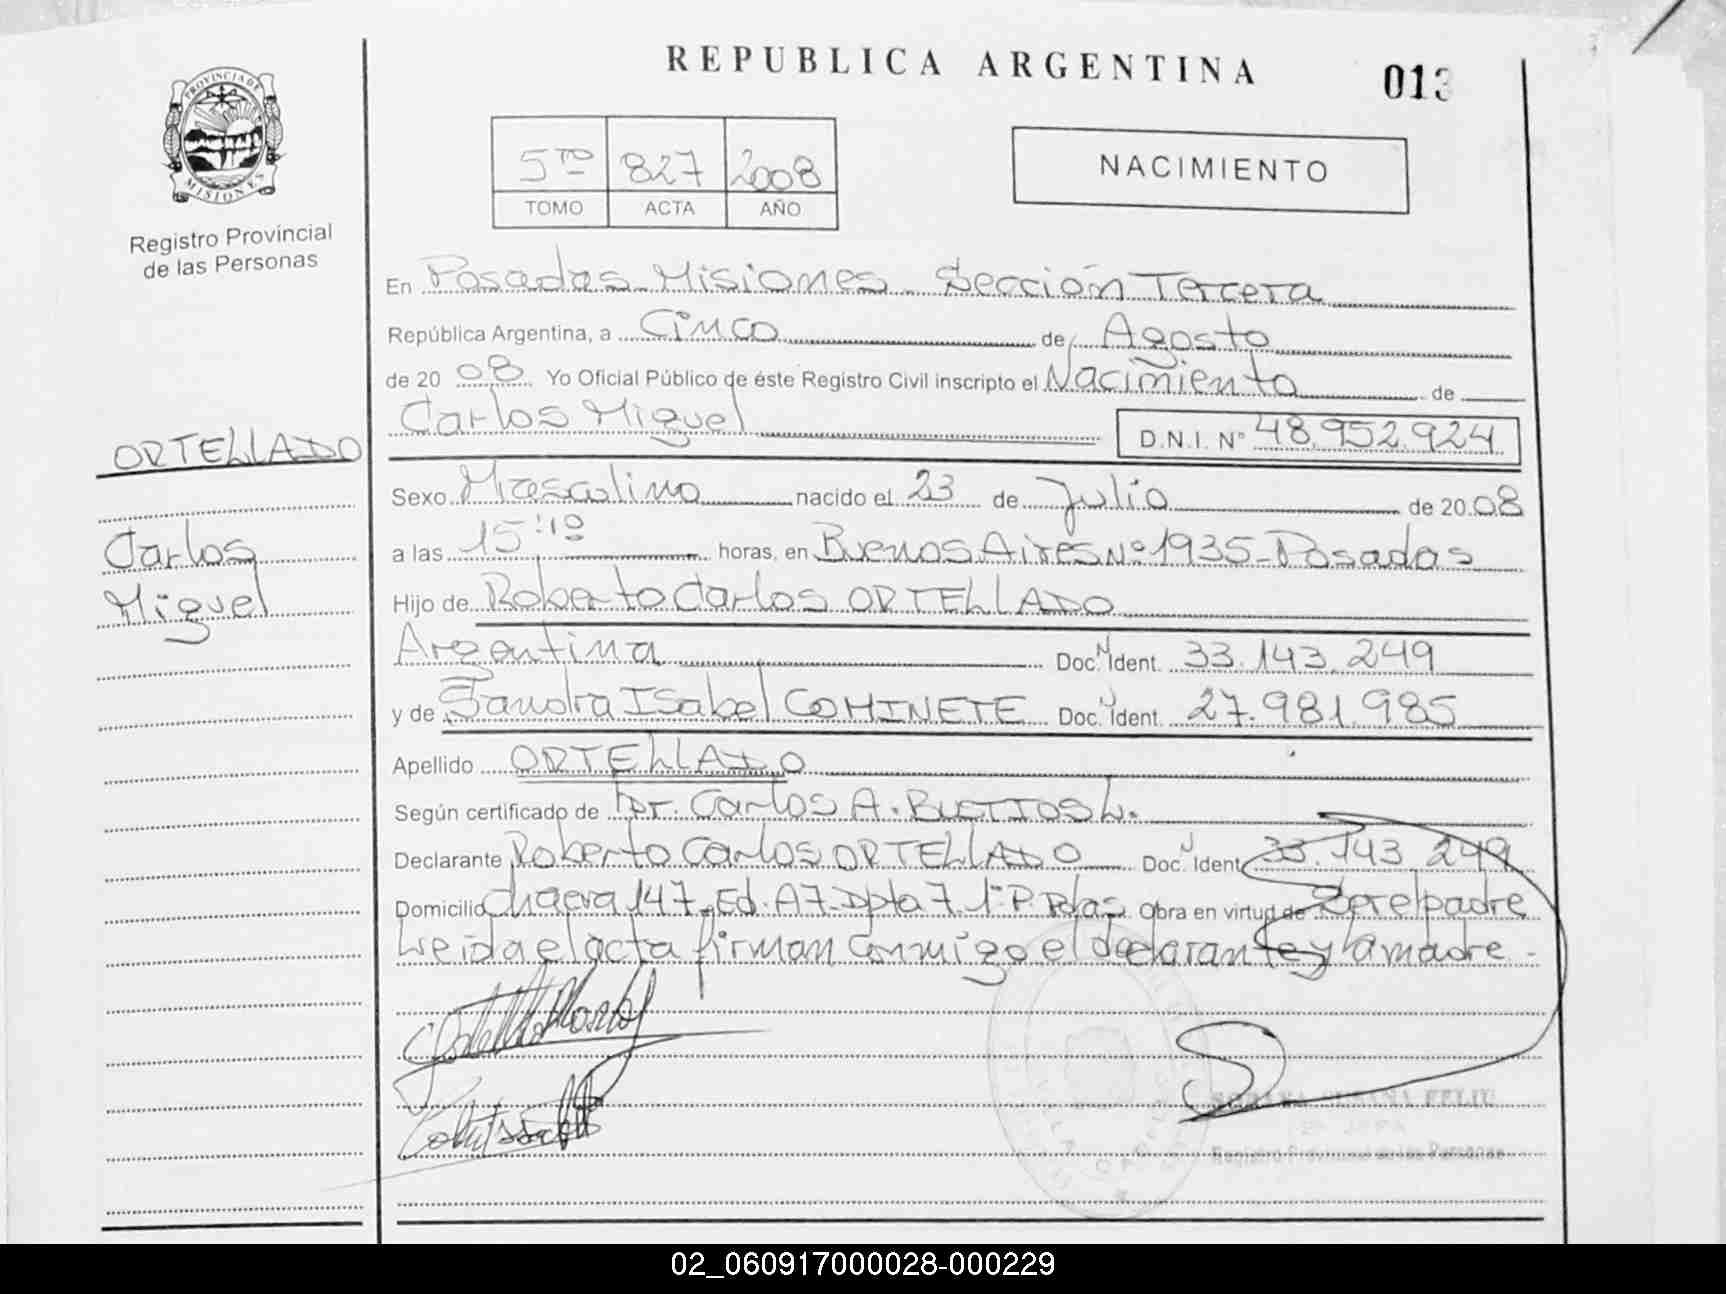 REPUBLICA ARGENTINA
013
PROVINCIA DE
MISIONES
Registro Provincial
de las Personas
5TO 827 2008
TOMO ACTA AÑO
NACIMIENTO
En Posadas Misiones - Sección Tercera
República Argentina, a Cinco de Agosto
de 20 08 Yo Oficial Público de éste Registro Civil inscripto el Nacimiento de
Carlos Miguel D.N.I. N° 48.952.924
ORTELLADO
Carlos
Miguel
Sexo Masculino nacido el 23 de Julio de 20 08
a las 15:10 horas, en Buenos Aires Nº 1935 - Posadas
Hijo de Roberto Carlos ORTELLADO
Argentina Doc. Ident. 33.143.249
y de Sandra Isabel COMINETE Doc. Ident. 27.981.985
Apellido ORTELLADO
Según certificado de Dr. Carlos A.
Declarante Roberto Carlos ORTELLADO Doc. Ident. 33.143.249
Domicilio Chacra 147 - Ed. A7 - Dpto 7 1° P. Pdas. Obra en virtud de Ser el padre
Leida el acta firman conmigo el declarante y la madre -
FELIU
Registro Provincial de las Personas
02_060917000028-000229